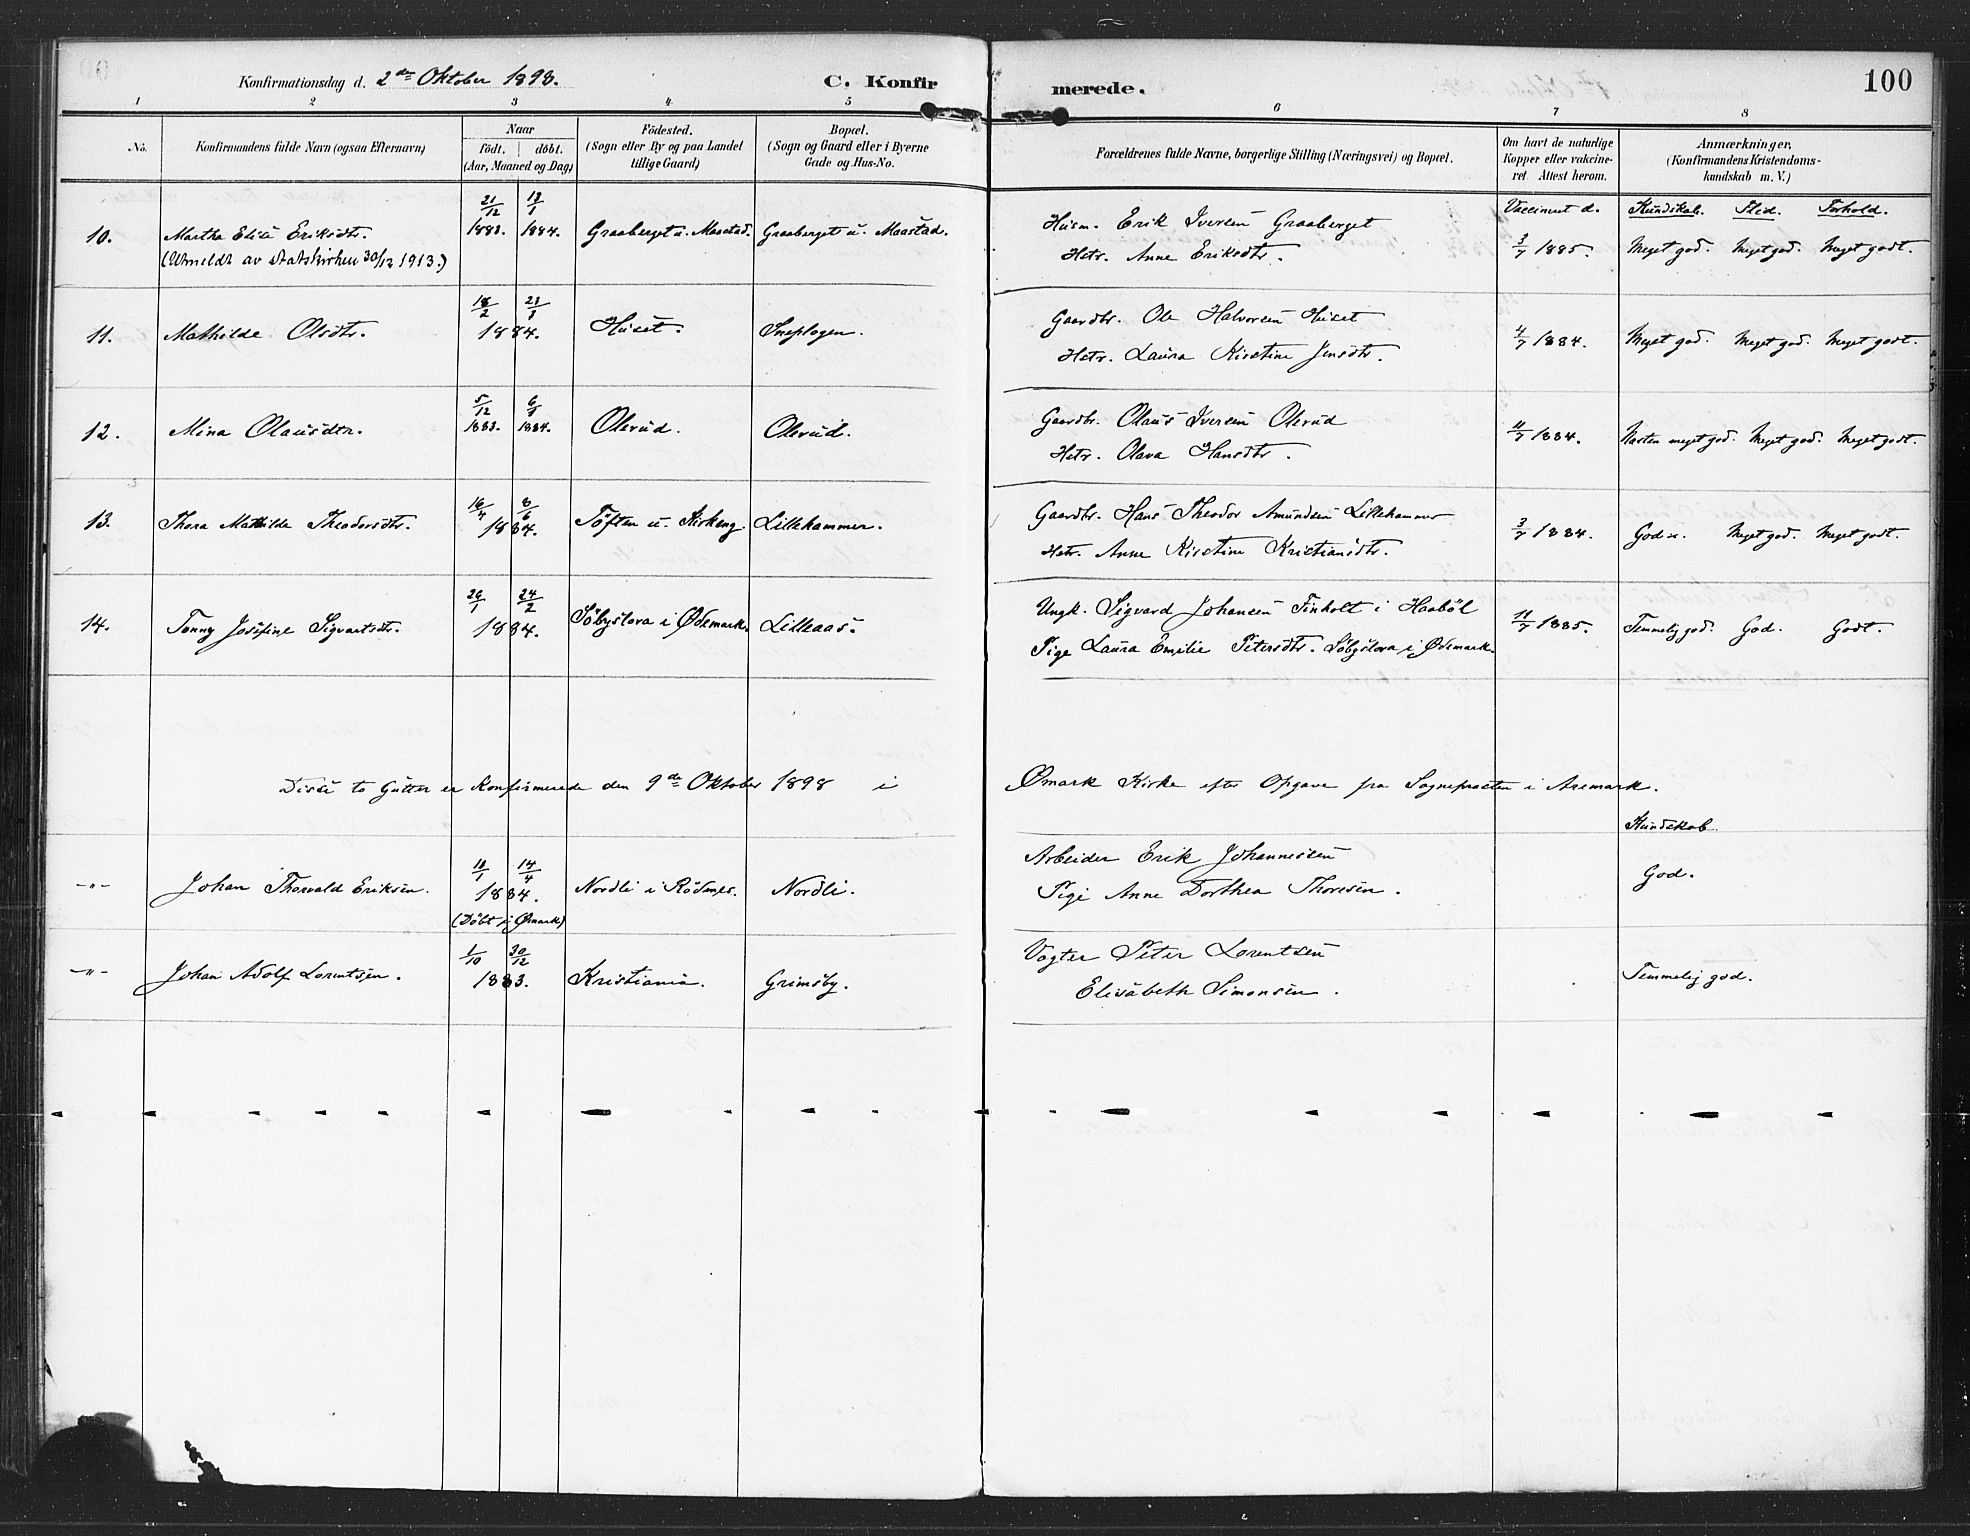 Konfirmationsdag d. 2den Oktober 1898. C. Konfirmerede. 100
1 2 3 4 5 6 7 8
No.
Konfirmandens fulde Navn (ogsaa Efternavn)
Naar
født. døbt.
(Aar, Maaned og Dag)
Födested.
(Sogn eller By og paa Landet
tillige Gaard)
Bopæl.
(Sogn og Gaard eller i Byerne
Gade og Hus-No.
Forældrenes fulde Navne, borgerlige Stilling (Næringsvei) og Bopæl.
Om havt de naturlige
Kopper eller vakcine-
ret Attest herom.
Anmærkninger,
(Konfirmandens Kristendoms-
kundskab m. V.)
Vaccineret d. Kundskab. Flid. Forhold.
10. Martha Elise Eriksdtr. 21/12 1883. 13/1 1884. Graaberget u. Maastad. Graaberget u. Maastad. Husm. Erik Iversen Graaberget 3/7 1885. Meget god. Meget god. Meget godt.
(Utmeldt av statskirken 30/12 1913.) Hstr. Anne Eriksdtr.
11. Mathilde Olsdtr. 18/2 23/3 1884. Huset. Sneplogen. Gaardbr. Ole Halvorsen Huset 4/7 1884. Meget god. Meget god. Meget godt.
Hstr. Laura Kirstine Jensdtr.
12. Mina Olausdtr. 5/12 1883. 6/1 1884. Olerud. Olerud. Gaardbr. Olaus Iversen Olerud 11/7 1884. Næsten meget god. Meget god. Meget godt.
Hstr. Olava Hansdtr.
13. Thora Mathilde Theodorsdtr. 16/4 8/6 1884. Töften u. Kirkeng. Lillehammer. Gaardbr. Hans Theodor Amundsen Lillehammer 3/7 1884. God Meget god. Meget godt.
Hstr. Anne Kirstine Kristiansdtr.
14. Tonny Josefine Sigvartsdtr. 26/1 24/2 1884. Söbyslora i Ødemark. Lilleaas. Ungk. Sigvard Johansen Finholt i Haaböl 11/7 1885. Temmelig god. God. Godt.
Pige Laura Emilie Petersdtr. Söbyslora i Ødemark.
Disse to Gutter er Konfirmerede den 9de Oktober 1898 i Ømark Kirke efter Opgave fra Sognepræsten i Aremark.
Kundskab.
-"- Johan Thorvald Eriksen. 18/1 14/4 1884. Nordli i Rödenes. Nordli. Arbeider Erik Johannessen God.
(Döbt i Ømark) Pige Anne Dorthea Thoresen.
-"- Johan Adolf Lorentsen. 1/10 30/12 1883. Kristiania. Grimsby. Vogter Peter Lorentsen Temmelig god.
Elisabeth Simonsen.